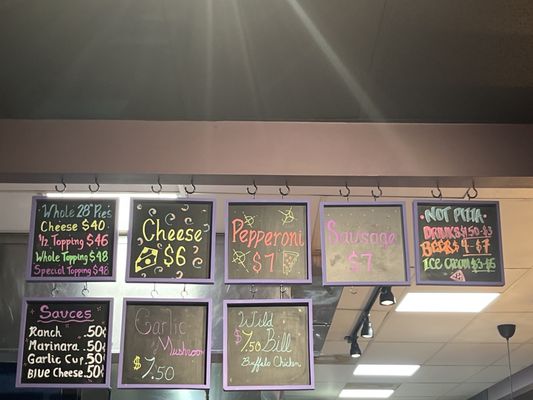 Whole 28" Pies
Cheese $40
1/2 Topping $46
Whole Topping $48
Special Topping $48
Cheese
$6
Pepperoni
$7
Sausage
$7
NOT PIZZA
DRINKS $1.50-$3
BEERS $4-$7
ICE CREAM $3-$5
Sauces
Ranch .50¢
Marinara .50¢
Garlic Cup .50¢
Blue Cheese .50¢
Garlic
Mushroom
$7.50
Wild
$7.50 Bill
Buffalo Chicken